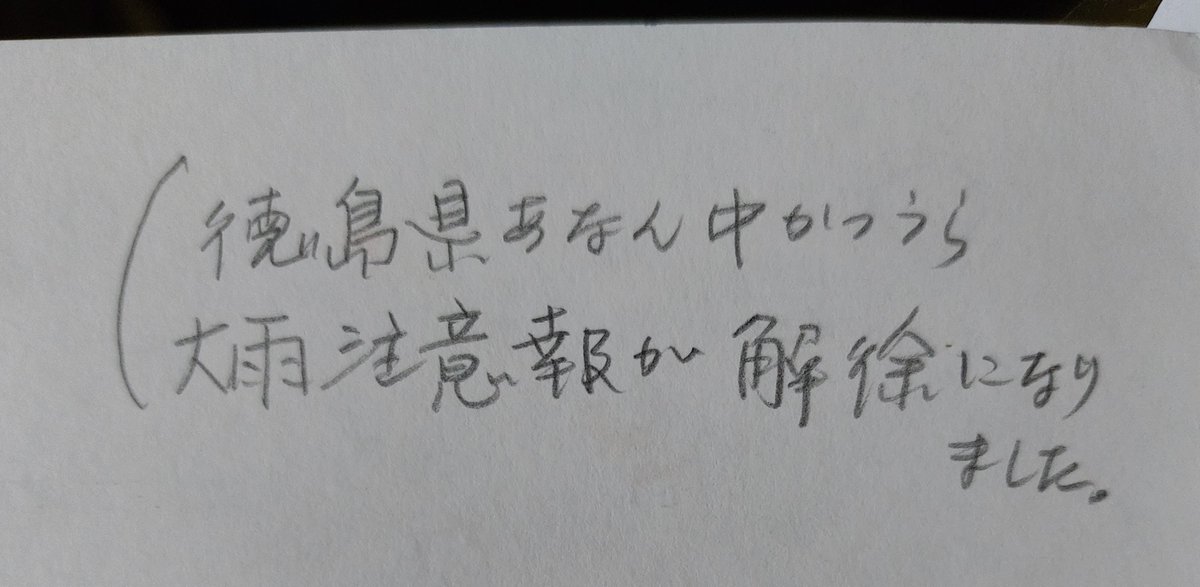 (徳島県あなん中かつうら
大雨注意報が解徐になり
ました。